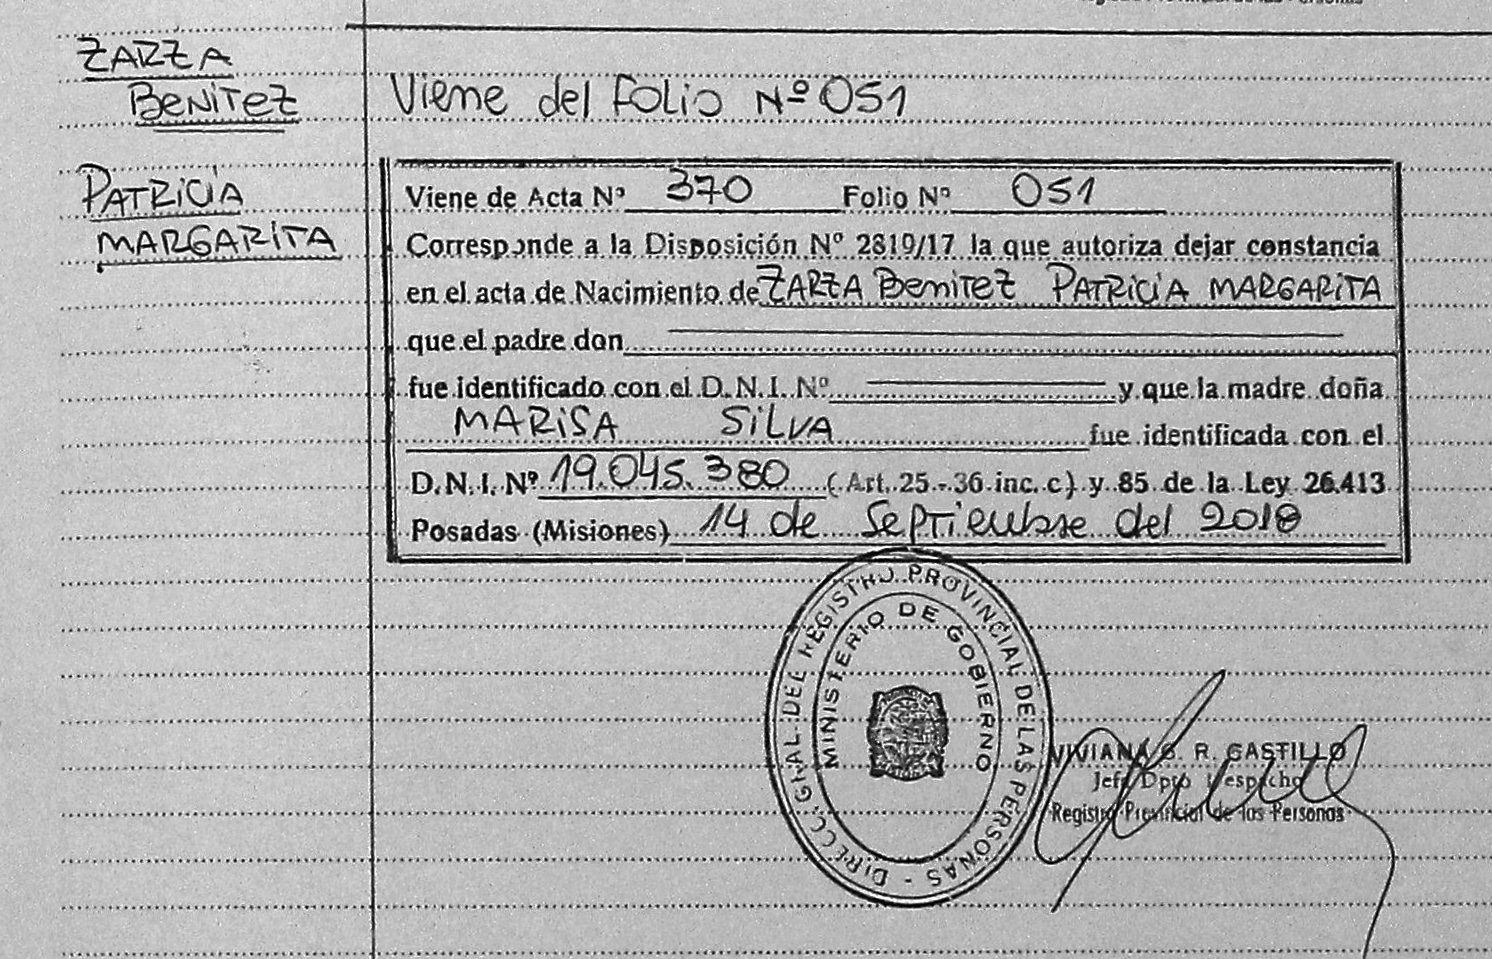 ZARZA
BENITEZ
Viene del FOLIO Nº 051
PATRICIA
MARGARITA
Viene de Acta Nº 370 Folio Nº 051
Corresponde a la Disposición Nº 2819/17 la que autoriza dejar constancia
en el acta de Nacimiento de ZARZA BENITEZ PATRICIA MARGARITA
que el padre don
fue identificado con el D.N.I. Nº y que la madre doña
MARISA SILVA fue identificada con el
D.N.I. Nº 19.045.380 (Art. 25 - 36 inc. c) y 85 de la Ley 26.413
Posadas (Misiones) 14 de Septiembre del 2018
DIRECC. GRAL. DEL REGISTRO PROVINCIAL DE LAS PERSONAS -
MINISTERIO DE GOBIERNO
VIVIANA G. R. CASTILLO
Jefe Dpto Despacho
Registro Provincial de las Personas